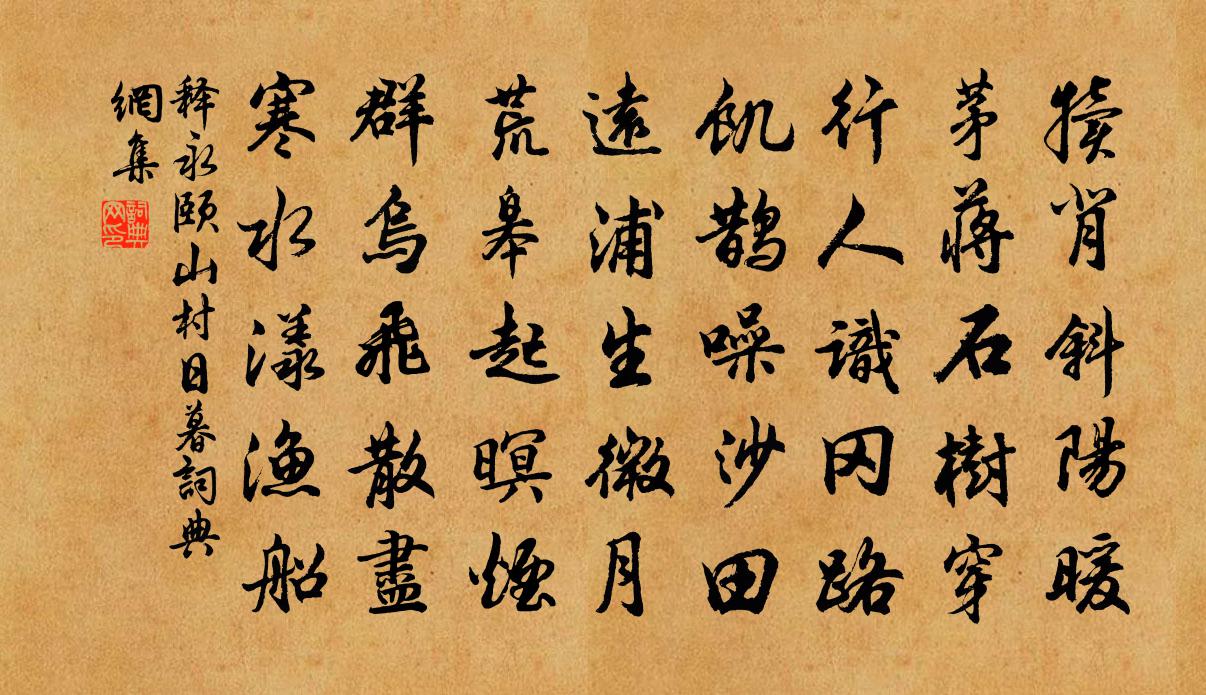 犢肖斜陽暖
茅蔣石樹穿
行人識冈路
飢鵲噪沙田
遠浦生微月
荒皋起暝煙
群烏飛散盡
寒水漾漁船
释永頤山村日暮詞典
網集
詞典网印